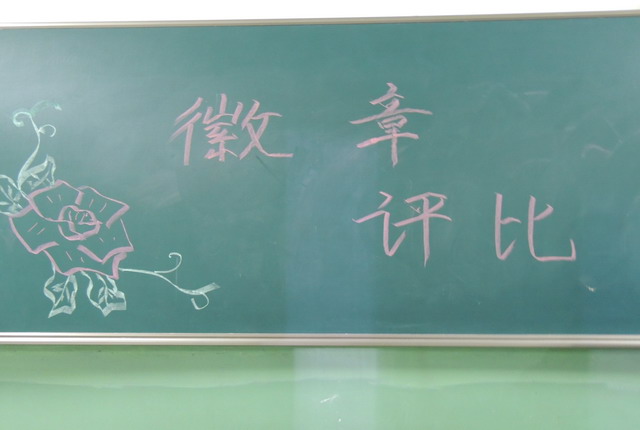 徽章
评比